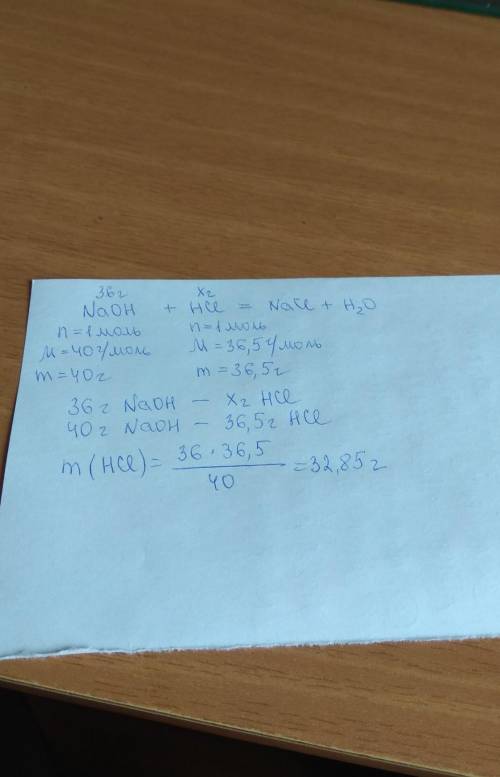 36г хг
NaOH + HCl = NaCl + H₂O
n=1моль n=1моль
M=40г/моль M=36,5г/моль
m=40г m=36,5г
36г NaOH – хг HCl
40г NaOH – 36,5г HCl
m(HCl)= 36·36,5 / 40 =32,85г